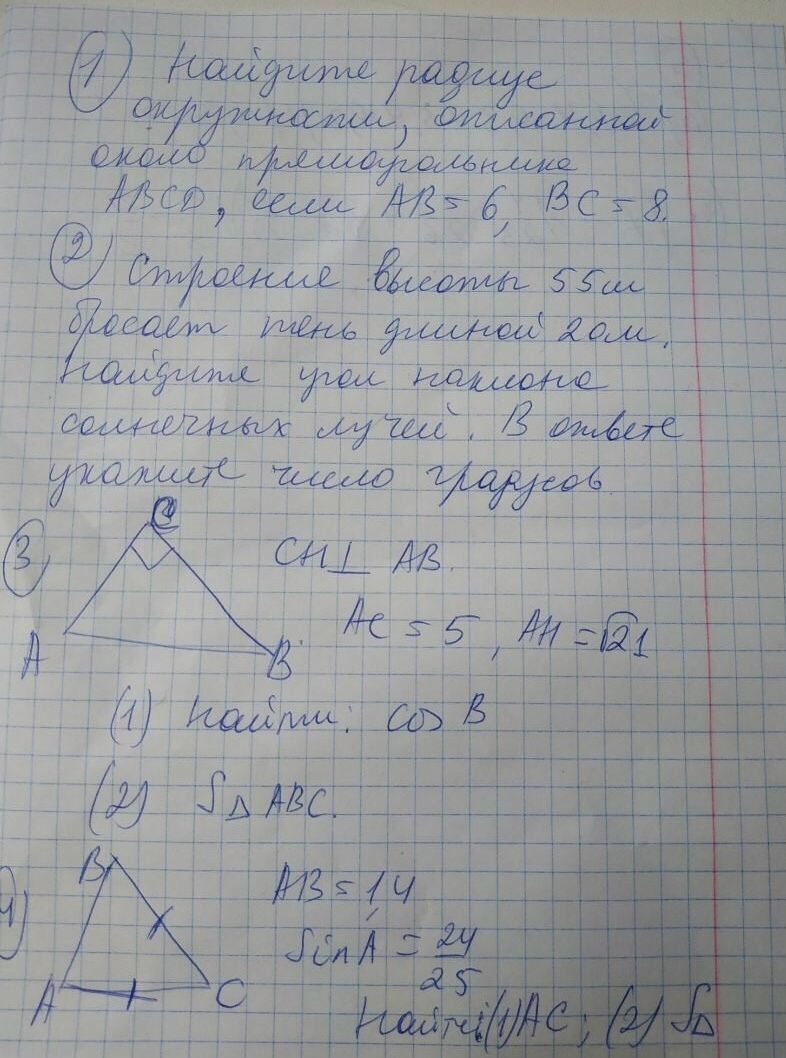 1) Найдите радиус
окружности, описанной
около прямоугольника
ABCD, если AB = 6, BC = 8.
2) Строение высоты 55м
бросает тень длиной 20м.
Найдите угол наклона
солнечных лучей. В ответе
укажите число градусов
3) C
CH⊥ AB.
AC = 5, AH = √21
A B
(1) Найти: cos B
(2) S△ ABC.
4) B
AB = 14
sin A = 24/25
A C
Найти: (1) AC; (2) S△